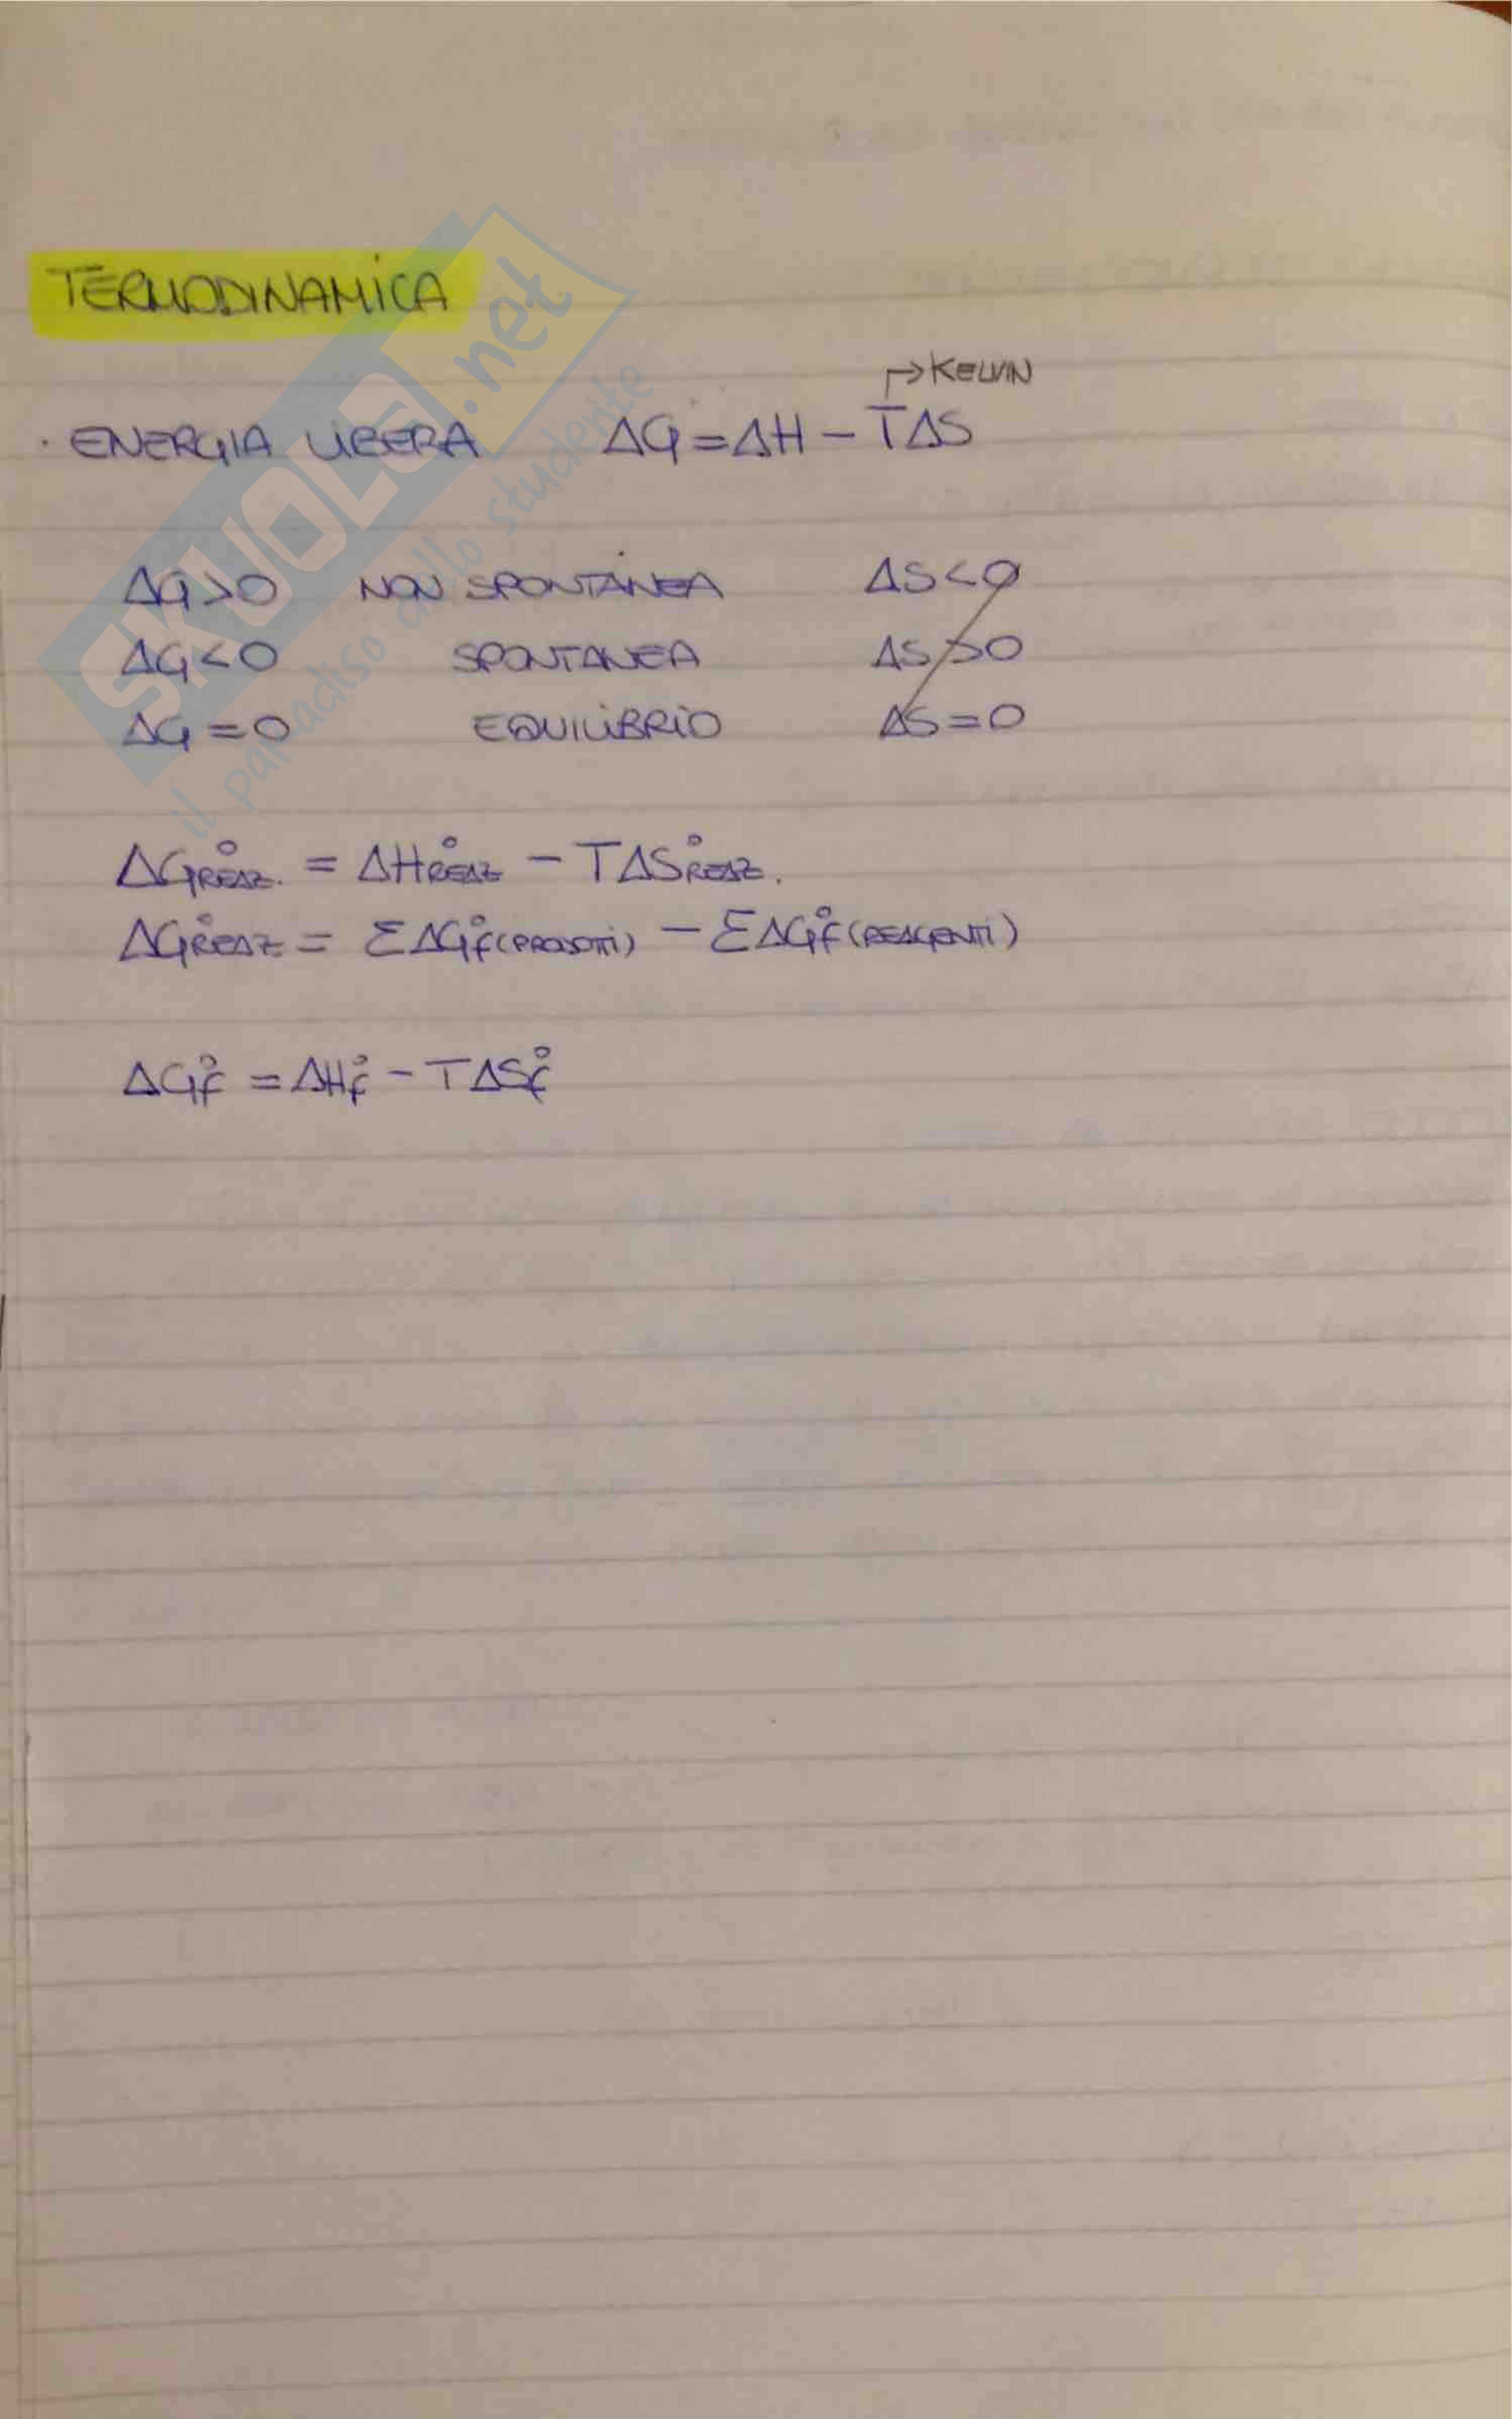 TERMODINAMICA
→KELVIN
· ENERGIA LIBERA ΔG=ΔH-TΔS
ΔG>0 NON SPONTANEA ΔS<0
ΔG<0 SPONTANEA ΔS>0
ΔG=0 EQUILIBRIO ΔS=0
ΔG°REAZ. = ΔH°REAZ - TΔS°REAZ.
ΔG°REAZ = ΣΔG°f(PRODOTTI) - ΣΔG°f(REAGENTI)
ΔG°f = ΔH°f - TΔS°f
SKUOLA.net
il paradiso dello studente